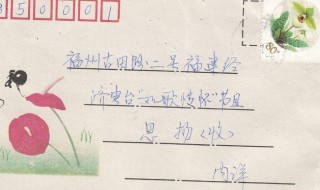 350001
福州古田路二号福建经
济电台"如歌情怀"节目
思扬（收）
内详